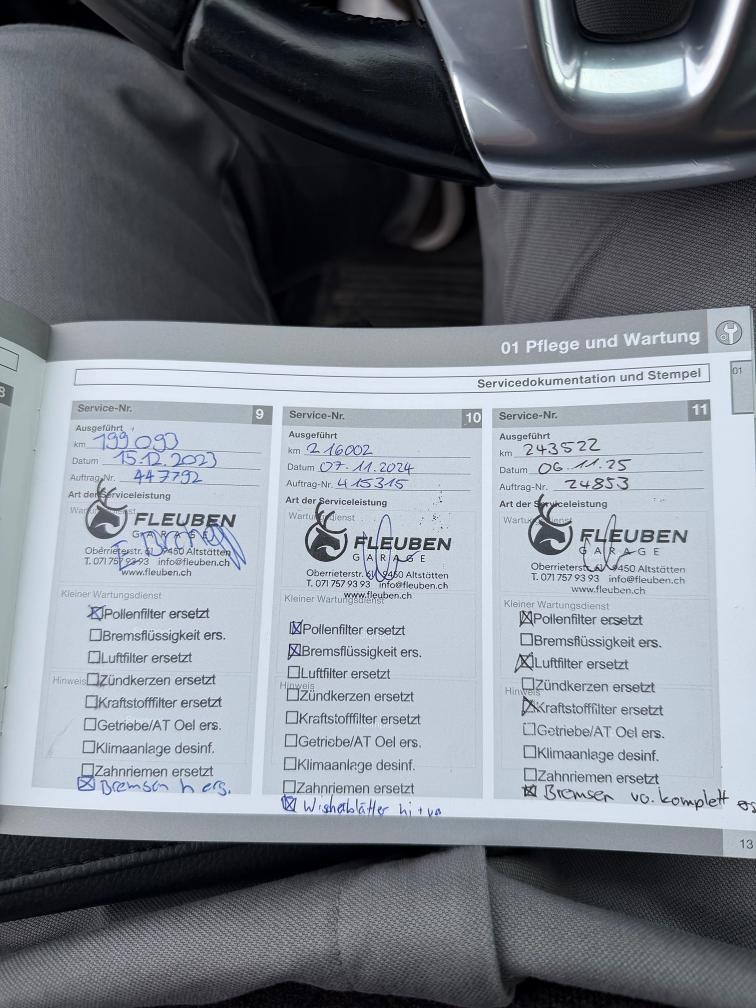 01 Pflege und Wartung
01
Servicedokumentation und Stempel
8
Service-Nr. 9
Ausgeführt
km 199 093
Datum 15.12.2023
Auftrag-Nr. 447792
Art der Serviceleistung
FLEUBEN
GARAGE
Oberrieterstr. 61 9450 Altstätten
T. 071 757 93 93 info@fleuben.ch
www.fleuben.ch
Kleiner Wartungsdienst
Pollenfilter ersetzt
Bremsflüssigkeit ers.
Luftfilter ersetzt
Hinweis
Zündkerzen ersetzt
Kraftstofffilter ersetzt
Getriebe/AT Oel ers.
Klimaanlage desinf.
Zahnriemen ersetzt
Bremsen h ers.
Service-Nr. 10
Ausgeführt
km 216002
Datum 07.11.2024
Auftrag-Nr. 415315
Art der Serviceleistung
FLEUBEN
GARAGE
Oberrieterstr. 61 9450 Altstätten
T. 071 757 93 93 info@fleuben.ch
www.fleuben.ch
Kleiner Wartungsdienst
Pollenfilter ersetzt
Bremsflüssigkeit ers.
Luftfilter ersetzt
Hinweis
Zündkerzen ersetzt
Kraftstofffilter ersetzt
Getriebe/AT Oel ers.
Klimaanlage desinf.
Zahnriemen ersetzt
Wisherblätter hi+vo
Service-Nr. 11
Ausgeführt
km 243522
Datum 06.11.25
Auftrag-Nr. 24853
Art der Serviceleistung
FLEUBEN
GARAGE
Oberrieterstr. 61 9450 Altstätten
T. 071 757 93 93 info@fleuben.ch
www.fleuben.ch
Kleiner Wartungsdienst
Pollenfilter ersetzt
Bremsflüssigkeit ers.
Luftfilter ersetzt
Hinweis
Zündkerzen ersetzt
Kraftstofffilter ersetzt
Getriebe/AT Oel ers.
Klimaanlage desinf.
Zahnriemen ersetzt
Bremsen vo. komplett
13